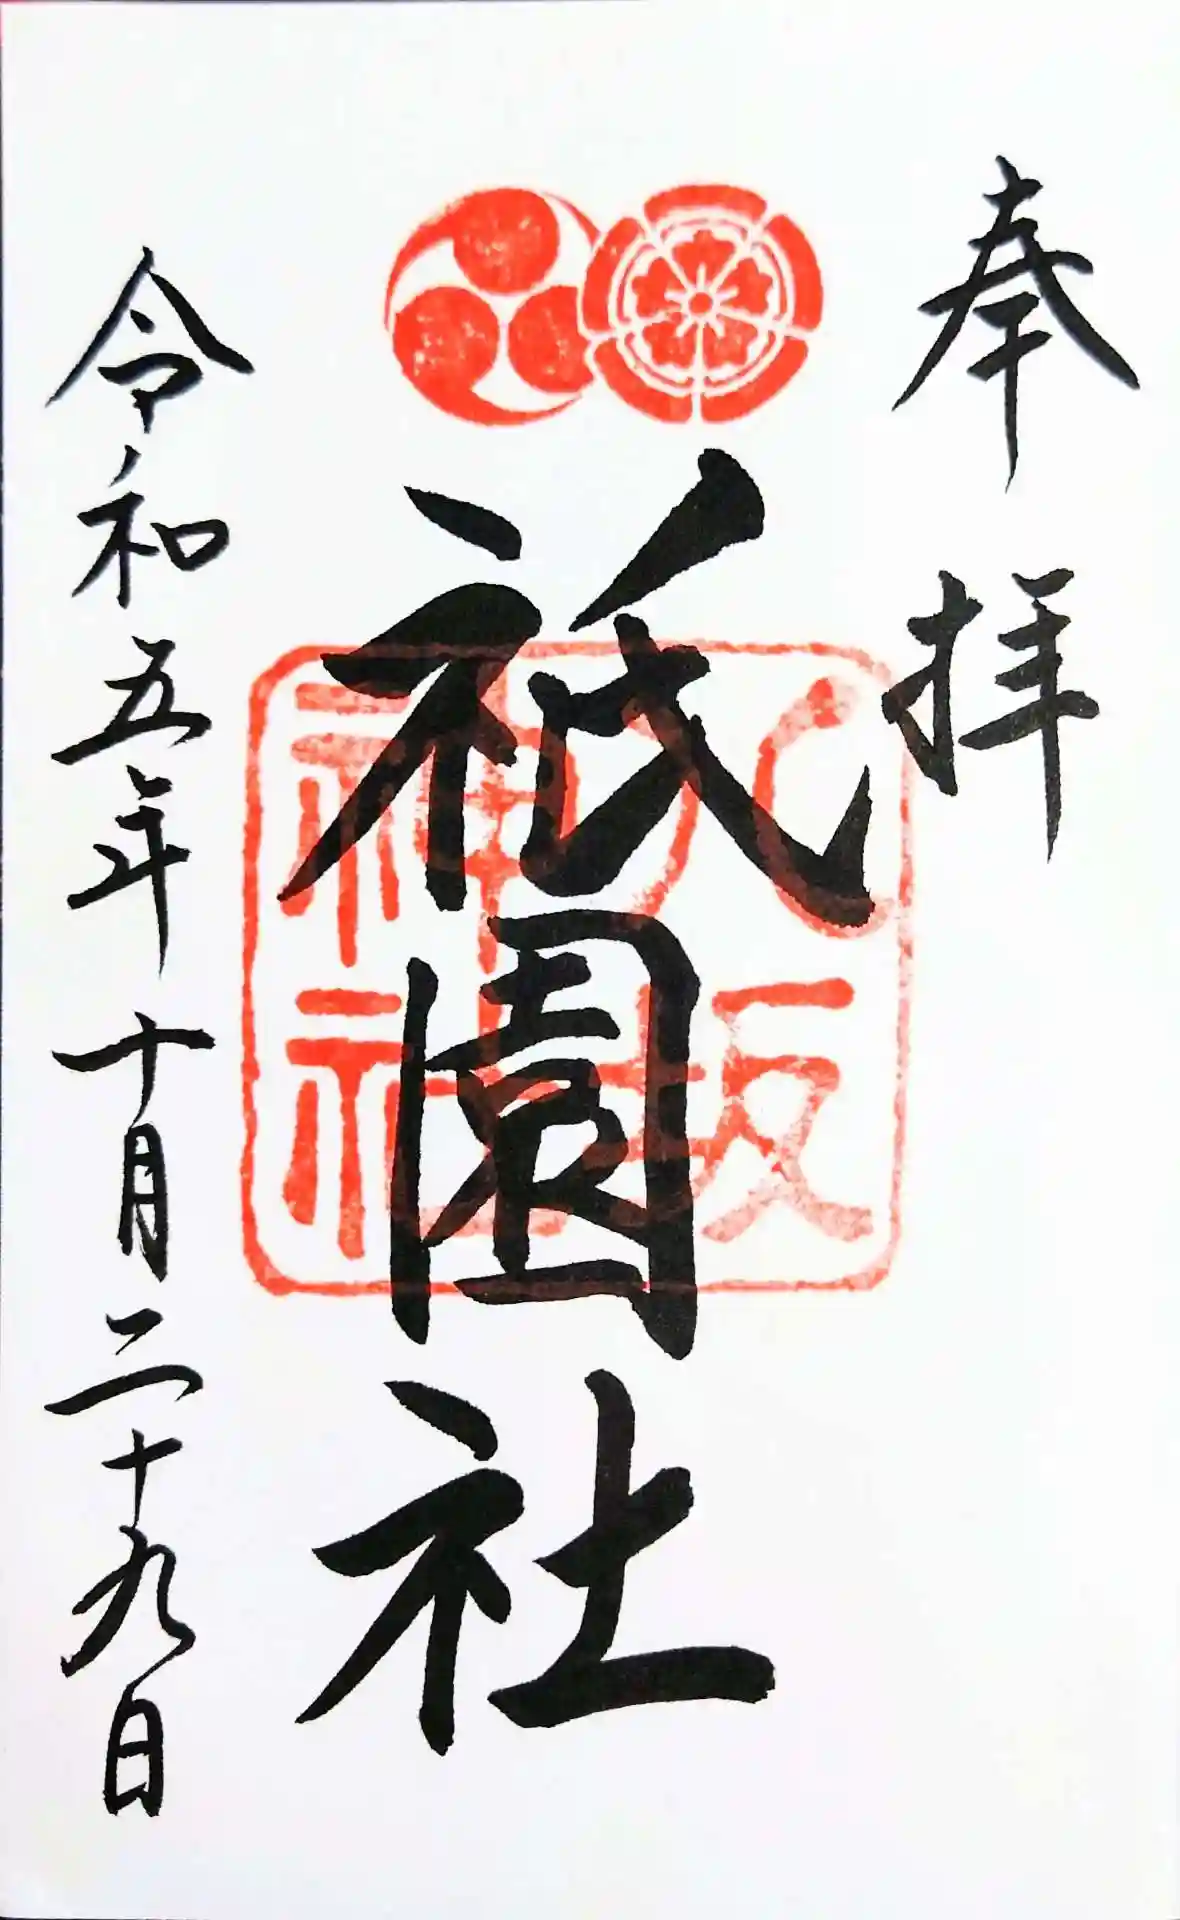 奉拝
八坂
神社
祇園社
令和五年十月二十九日